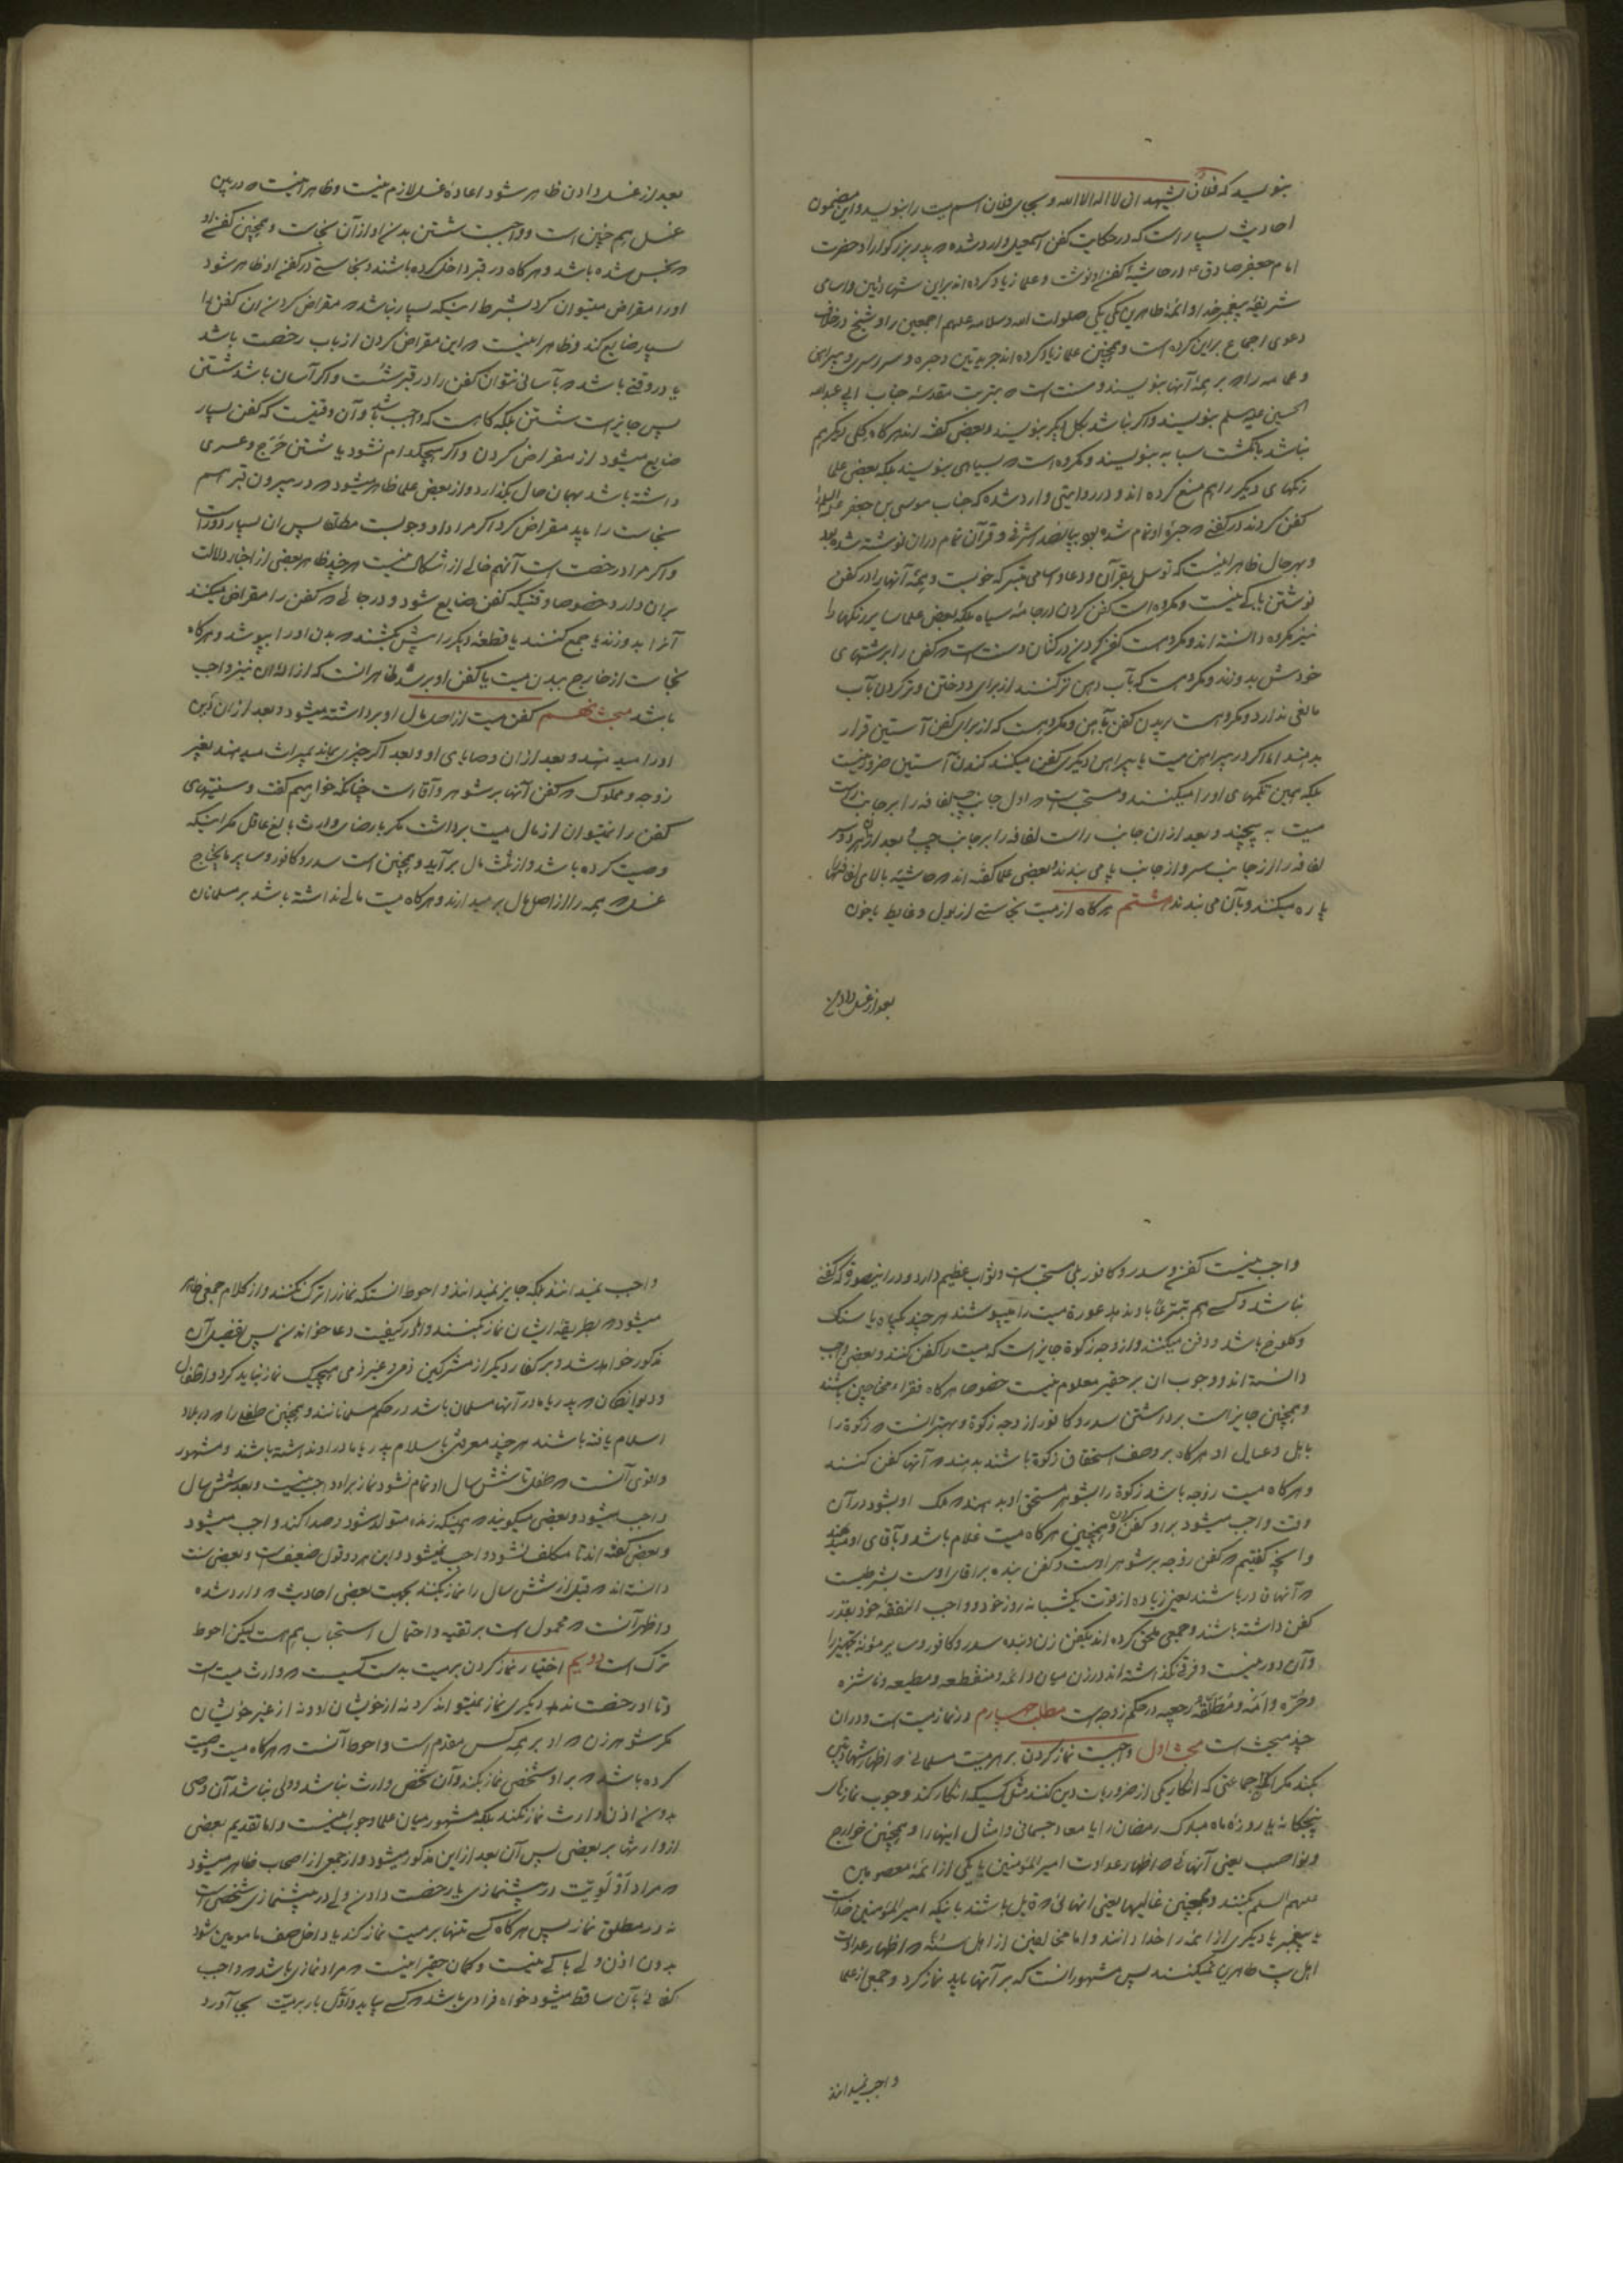 بنویسد که فلان یشهد ان لا اله الا الله و بجای فلان اسم میت را بنویسد و این مضمون
احادیث بسیار است که در حکایت کفن اسمعیل وارد شده که پدر بزرگوار او حضرت
امام جعفر صادق ع در حاشیهٔ کفن او نوشت و علما زیاد کرده‌اند بر این شهادتین و اسامی
شریفهٔ پیغمبر خدا و ائمهٔ طاهرین یکی یکی صلوات الله و سلامه علیهم اجمعین را و شیخ در خلاف
دعوی اجماع بر این کرده است و همچنین علما زیاد کرده‌اند جریدتین و حبره و سراسری و پیراهن
و عمامه را که بر همهٔ آنها بنویسند و سنت است که بتربت مقدسهٔ جناب ابی عبدالله
الحسین علیه السلم بنویسند و اگر نباشد بگل دیگر بنویسند و بعضی گفته‌اند هرگاه گلی دیگر هم
نباشد بانگشت سبابه بنویسند و مکروه است که بسیاهی بنویسند بلکه بعضی علما
رنگهای دیگر را هم منع کرده‌اند و در روایتی وارد شده که جناب موسی بن جعفر علیه السلام را
کفن کردند در کفنی که حبرهٔ او تمام شده بود بپانصد اشرفی و قرآن تمام در آن نوشته شده بود
و بهر حال ظاهر اینست که توسل بقرآن و دعا و اسامی متبرکه خوبست و همهٔ آنها را در کفن
نوشتن باکی نیست و مکروه است کفن کردن در جامهٔ سیاه بلکه بعضی علما سایر رنگها را
نیز مکروه دانسته‌اند و مکروهست کفن کردن در کتان و سنت است که کفن را بریشتهای
خودش بدوزند و مکروهست که بآب دهن تر کنند از برای دوختن و تر کردن بآب
مانعی ندارد و مکروهست بریدن کفن بآهن و مکروهست که از برای کفن آستین قرار
بدهند اما اگر در پیراهن میت یا پیراهن دیگری کفن میکنند کندن آستین ضرور نیست
بلکه همین تکمهای او را میکنند و مستحب است که اول جانب چپ لفافه را بر جانب راست
میت به پیچند و بعد از آن جانب راست لفافه را بر جانب چپ و بعد از آن هر دو سر
لفافه را از جانب سر و از جانب پا می بندند و بعضی علما گفته‌اند که حاشیهٔ بالای لفافه‌ها
پاره میکنند و بآن می بندند هشتم هرگاه از میت نجاستی از بول و غایط یا خون
بعد از غسل دادن
بعد از غسل دادن ظاهر شود اعادهٔ غسل لازم نیست و ظاهر اینست که در بین
غسل هم چنین است و واجبست شستن بدن او از آن نجاست و همچنین کفن او
که نجس شده باشد و هرگاه در قبر داخل کرده باشند و نجاستی در کفن او ظاهر شود
او را مقراض میتوان کرد بشرط اینکه بسیار نباشد که مقراض کردن آن کفن را
بسیار ضایع کند و ظاهر اینست که این مقراض کردن از باب رخصت باشد
یا در وقتی باشد که بآسانی نتوان کفن را در قبر شست و اگر آسان باشد شستن
پس جایز است شستن بلکه گاهست که واجب باشد و آن وقتیست که کفن بسیار
ضایع میشود از مقراض کردن و اگر هیچکدام نشود یا شستن حرج و عسری
داشته باشد بهمان حال بگذارد و از بعض علما ظاهر میشود که در بیرون قبر هم
نجاست را باید مقراض کرد اگر مراد او وجوبست مطلقا پس آن بسیار دور است
و اگر مراد رخصت است آنهم خالی از اشکال نیست هر چند ظاهر بعضی از اخبار دلالت
بر آن دارد خصوصا وقتیکه کفن ضایع شود و در جائی که کفن را مقراض میکنند
آنرا بدوزند یا جمع کنند یا قطعهٔ دیگر را پیش بکشند که بدن او را بپوشد و هرگاه
نجاست از خارج ببدن میت یا کفن او برسد ظاهر آنست که ازالهٔ آن نیز واجب
باشد مبحث نهم کفن میت از اصل مال او برداشته میشود و بعد از آن دین
او را میدهند و بعد از آن وصایای او و بعد اگر چیزی بماند بمیراث میدهند بغیر
زوجه و مملوک که کفن آنها بر شوهر و آقا است چنانکه خواهیم گفت و سنتیهای
کفن را نمیتوان از مال میت برداشت مگر با رضای وارث بالغ عاقل مگر اینکه
وصیت کرده باشد و از ثلث مال بر آید و همچنین است سدر و کافور و سایر مایحتاج
غسل که همه را از اصل مال بر میدارند و هرگاه میت مالی نداشته باشد بر مسلمانان
واجب نیست کفن و سدر و کافور بلی مستحب است و ثواب عظیم دارد و در اینصورت که کفنی
نباشد و کسی هم تبرعا باو ندهد عورة میت را میپوشند هر چند بگیاه یا سنگ
و کلوخ باشد و دفن میکنند و از وجه زکوة جایز است که میت را کفن کنند و بعضی واجب
دانسته‌اند و وجوب آن بر حقیر معلوم نیست خصوصا هرگاه فقراء محتاجین باشند
و همچنین جایز است برداشتن سدر و کافور از وجه زکوة و بهتر آنست که زکوة را
باهل و عیال او هرگاه بر وصف استحقاق زکوة باشند بدهند که آنها کفن کنند
و هرگاه میت زوجه باشد زکوة را بشوهر مستحق او بدهند که ملک او بشود در آن
وقت واجب میشود بر او کفن کردن و همچنین هرگاه میت غلام باشد و بآقای او میدهند
و اینکه گفتیم که کفن زوجه بر شوهر اوست و کفن بنده بر آقای اوست بشرطیست
که آنها قادر باشند یعنی زیاده از قوت یکشبانه روز خود و واجب النفقهٔ خود بقدر
کفن داشته باشند و جمعی ملحق کرده‌اند بکفن زن و بنده سدر و کافور و سایر مؤنهٔ تجهیز را
و آن دور نیست و فرقی نگذاشته‌اند در زن میان دائمه و منقطعه و مطیعه و ناشزه
و حره و امه و مطلقهٔ رجعیه در حکم زوجه است مطلب چهارم در نماز میت است و در آن
چند مبحث است مبحث اول واجبست نماز کردن بر هر میت مسلمانی که اظهار شهادتین
بکند مگر آن جماعتی که انکار یکی از ضروریات دین کنند مثل کسیکه انکار کند وجوب نمازهای
پنجگانه یا روزهٔ ماه مبارک رمضان را یا معاد جسمانی و امثال اینها را و همچنین خوارج
و نواصب یعنی آنهائی که اظهار عداوت امیر المؤمنین یا یکی از ائمهٔ معصومین
علیهم السلم کنند و همچنین غالیها یعنی آنهائی که قایل باشند باینکه امیر المؤمنین خداست
یا پیغمبر یا دیگری از ائمه را خدا دانند و اما مخالفین از اهل سنة که اظهار عداوت
اهل بیت طاهرین نمیکنند پس مشهور آنست که بر آنها باید نماز کرد و جمعی از علما
واجب نمیدانند
واجب نمیدانند بلکه جایز نمیدانند و احوط آنستکه نماز را ترک نکنند و از کلام جمعی ظاهر
میشود که بطریقهٔ ایشان نماز بکنند و اما در کیفیت دعا خواندن پس تفصیل آن
مذکور خواهد شد و بر کفار دیگر از مشرکین ذمی و غیر ذمی هیچیک نماز نباید کرد و اطفال
و دیوانگان که پدر یا مادر آنها مسلمان باشد در حکم مسلمانند و همچنین طفلی را که در بلاد
اسلام یافته باشند هر چند معرفتی باسلام پدر یا مادر او نداشته باشند و مشهور
و اقوی آنست که طفل تا شش سال او تمام نشود نماز بر او واجب نیست و بعد شش سال
واجب میشود و بعضی میگویند که همینکه زنده متولد شود و صدا کند واجب میشود
و بعضی گفته‌اند تا مکلف نشود واجب نمیشود و این هر دو قول ضعیف است و بعضی سنت
دانسته‌اند که قبل از شش سال را نماز بکنند بجهت بعضی احادیث که وارد شده
و اظهر آنست که محمول است بر تقیه و احتمال استحباب هم هست لیکن احوط
ترک است دویم اختیار نماز کردن بر میت بدست کسیست که وارث میت است
و تا او رخصت ندهد دیگری نماز نمیتواند کرد نه از خویشان او و نه از غیر خویشان
مگر شوهر زن که او بر همه کس مقدم است و احوط آنست که هرگاه میت وصیت
کرده باشد که بر او شخصی نماز بکند و آن شخص وارث نباشد و ولی نباشد آن وصی
بدون اذن وارث نماز نکند بلکه مشهور میان علما وجوب اینست و اما تقدیم بعضی
از وارثها بر بعضی پس آن بعد از این مذکور میشود و از جمعی از اصحاب ظاهر میشود
که مراد اولویت در پیشنمازی یا رخصت دادن ولی در پیشنمازی شخصی است
نه در مطلق نماز پس هرگاه کسی تنها بر میت نماز کند یا داخل صف مامومین شود
بدون اذن ولی باکی نیست و گمان حقیر اینست که مراد نمازی باشد که واجب
کفائی بآن ساقط میشود خواه فرادی باشد که کسی بیاید و اول بار بر میت بجا آورد